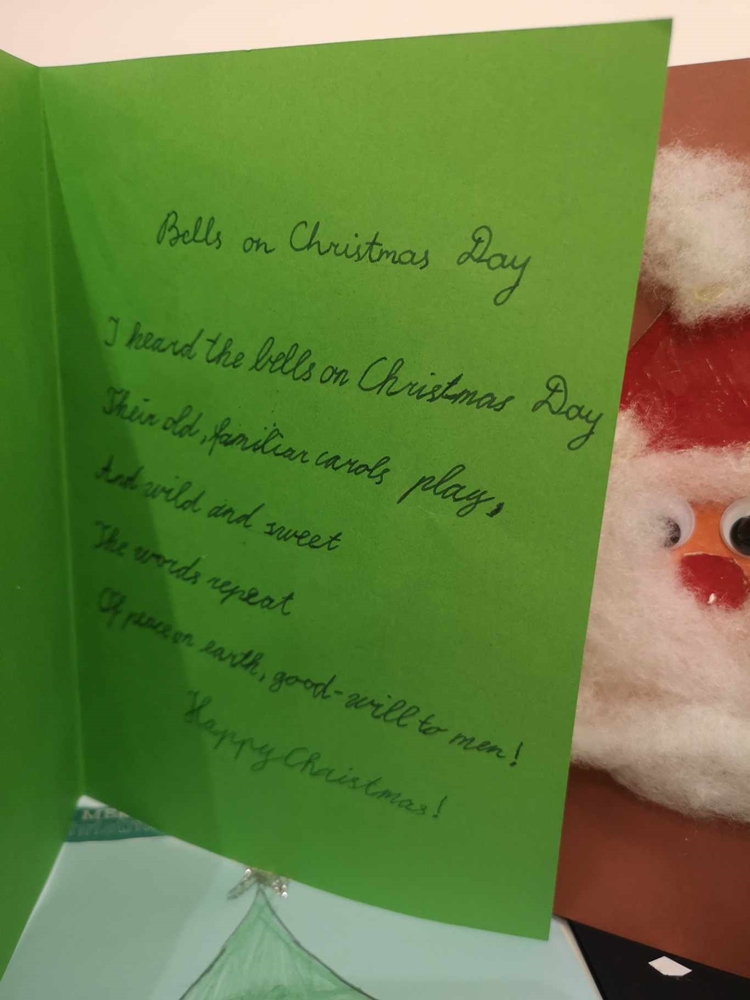 Bells on Christmas Day
I heard the bells on Christmas Day
Their old, familiar carols play,
And wild and sweet
The words repeat
Of peace on earth, good-will to men!
Happy Christmas!